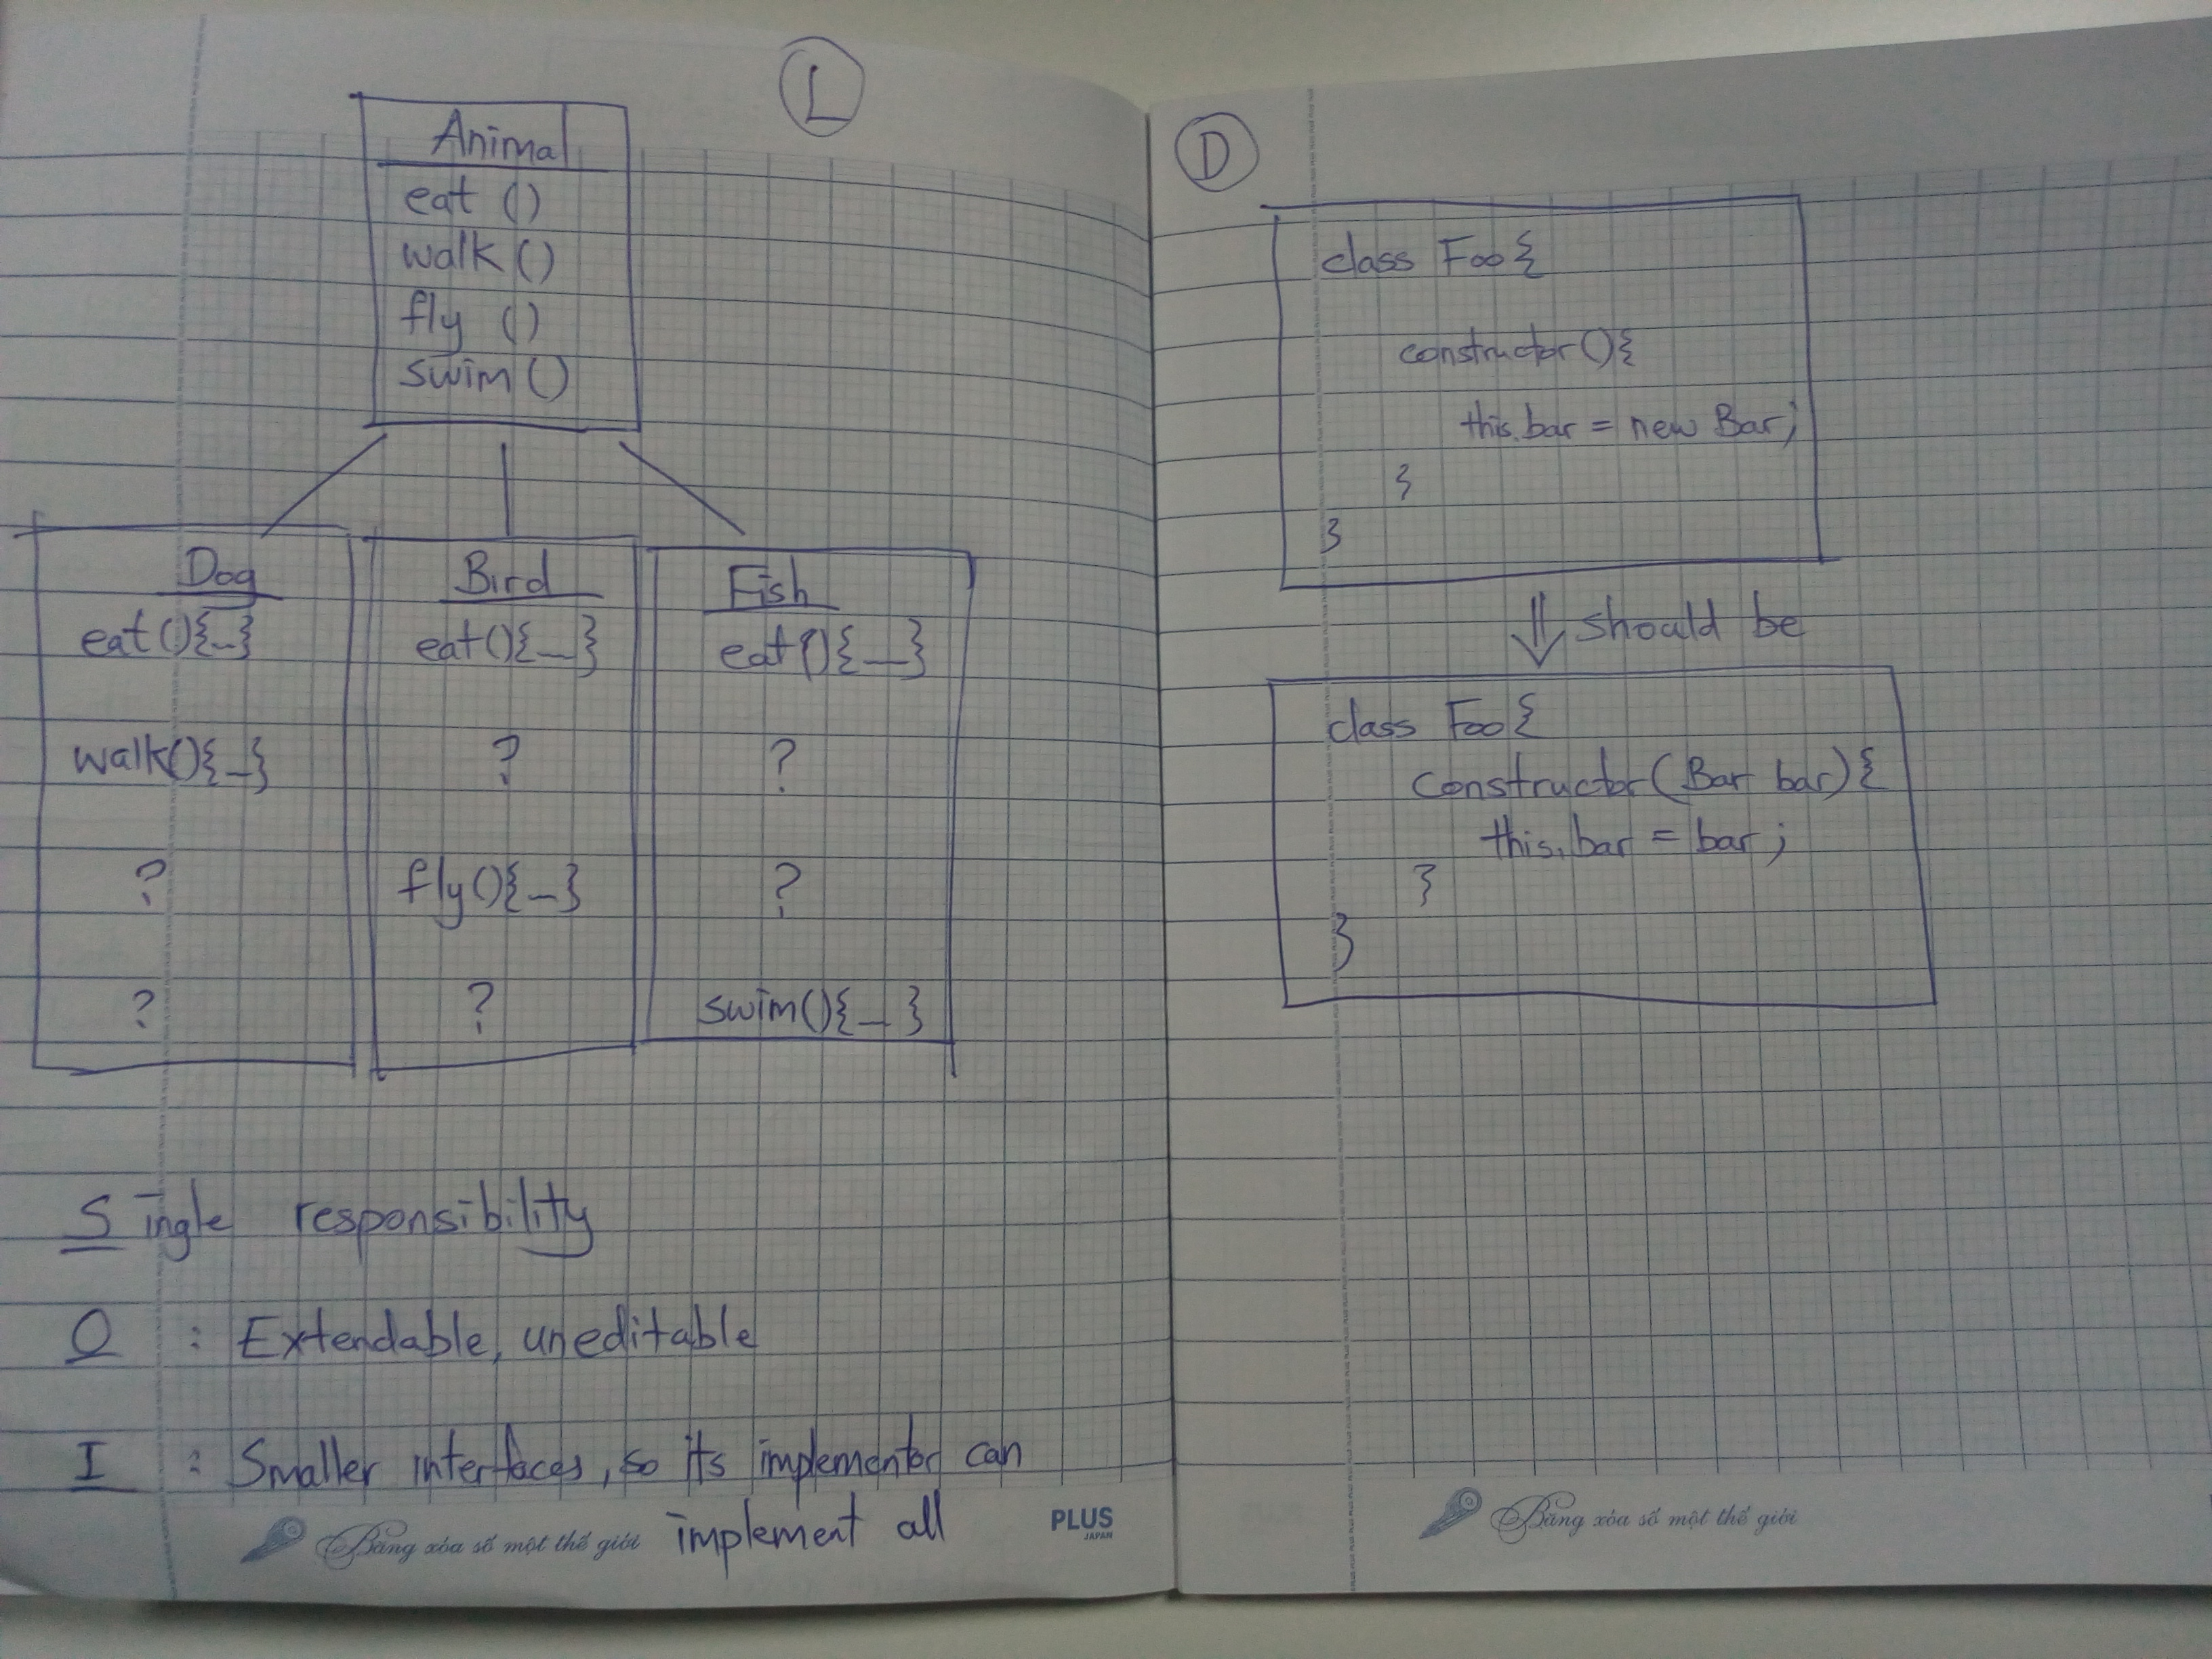 L
Animal
eat ()
walk ()
fly ()
swim ()
Dog
eat(){_}
walk(){_}
?
?
Bird
eat(){_}
?
fly(){_}
?
Fish
eat(){_}
?
?
swim(){_}
Single responsibility
O : Extendable, uneditable
I : Smaller interfaces, so its implementor can
implement all
Băng xóa số một thế giới
PLUS
JAPAN
D
class Foo{
constructor(){
this.bar = new Bar;
}
}
⇓ should be
class Foo{
constructor(Bar bar){
this.bar = bar;
}
}
Băng xóa số một thế giới